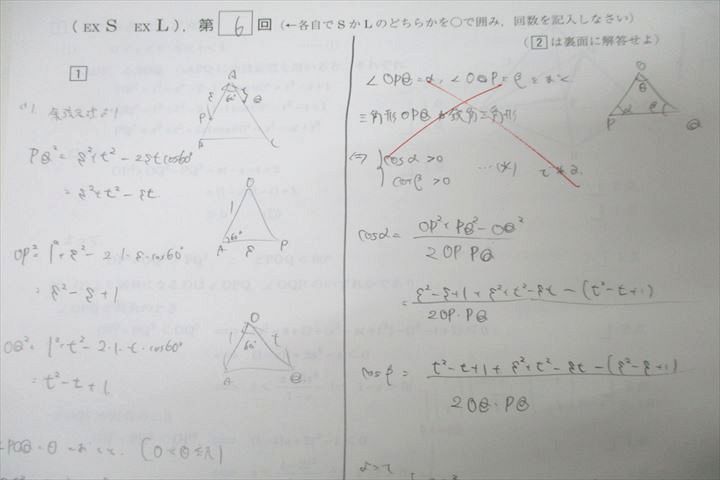 (EX S EX L), 第 6 回 (←各自でSかLのどちらかを○で囲み, 回数を記入しなさい)
(2 は裏面に解答せよ)
1
余弦定理より
PQ² = s²+t² - 2st cos60°
= s²+t² - st
OP² = 1²+s² - 2·1·s·cos60°
= s² - s + 1
OQ² = 1²+t² - 2·1·t·cos60°
= t² - t + 1
A
s
t
60°
P
Q
B
C
O
1
60°
A
s
P
O
1
t
60°
A
Q
∠POQ = θ とおくと,
∠OPQ = α, ∠OQP = β とおく
三角形OPQが鋭角三角形
⇔ { cosα > 0
cosβ > 0 …(*)
O
θ
P
α
β
Q
cosα = OP²+PQ²-OQ² / 2OP·PQ
= s²-s+1+s²+t²-st-(t²-t+1) / 2OP·PQ
cosβ = t²-t+1+s²+t²-st-(s²-s+1) / 2OQ·PQ
よって